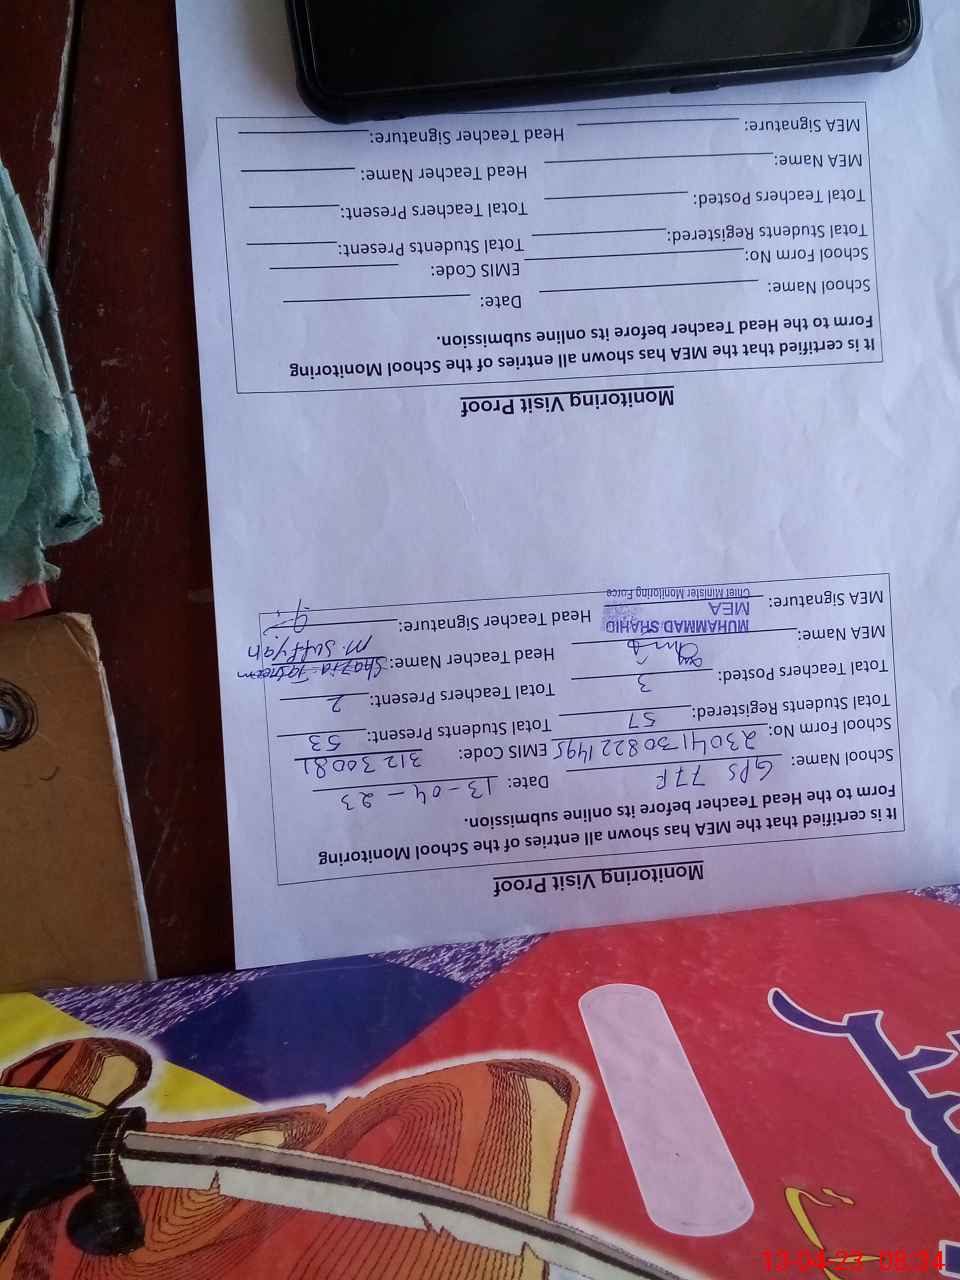 Monitoring Visit Proof
It is certified that the MEA has shown all entries of the School Monitoring
Form to the Head Teacher before its online submission.
School Name: GPS 77F Date: 13-04-23
School Form No: 230411308221495 EMIS Code: 31230081
Total Students Registered: 57 Total Students Present: 53
Total Teachers Posted: 3 Total Teachers Present: 2
MEA Name: Head Teacher Name: Shazia Tasneem
M. Suffyan
MUHAMMAD SHAHID
MEA
Chief Minister Monitoring Force
MEA Signature: Head Teacher Signature:
Monitoring Visit Proof
It is certified that the MEA has shown all entries of the School Monitoring
Form to the Head Teacher before its online submission.
School Name: Date:
School Form No: EMIS Code:
Total Students Registered: Total Students Present:
Total Teachers Posted: Total Teachers Present:
MEA Name: Head Teacher Name:
MEA Signature: Head Teacher Signature:
13-04-23 08:34